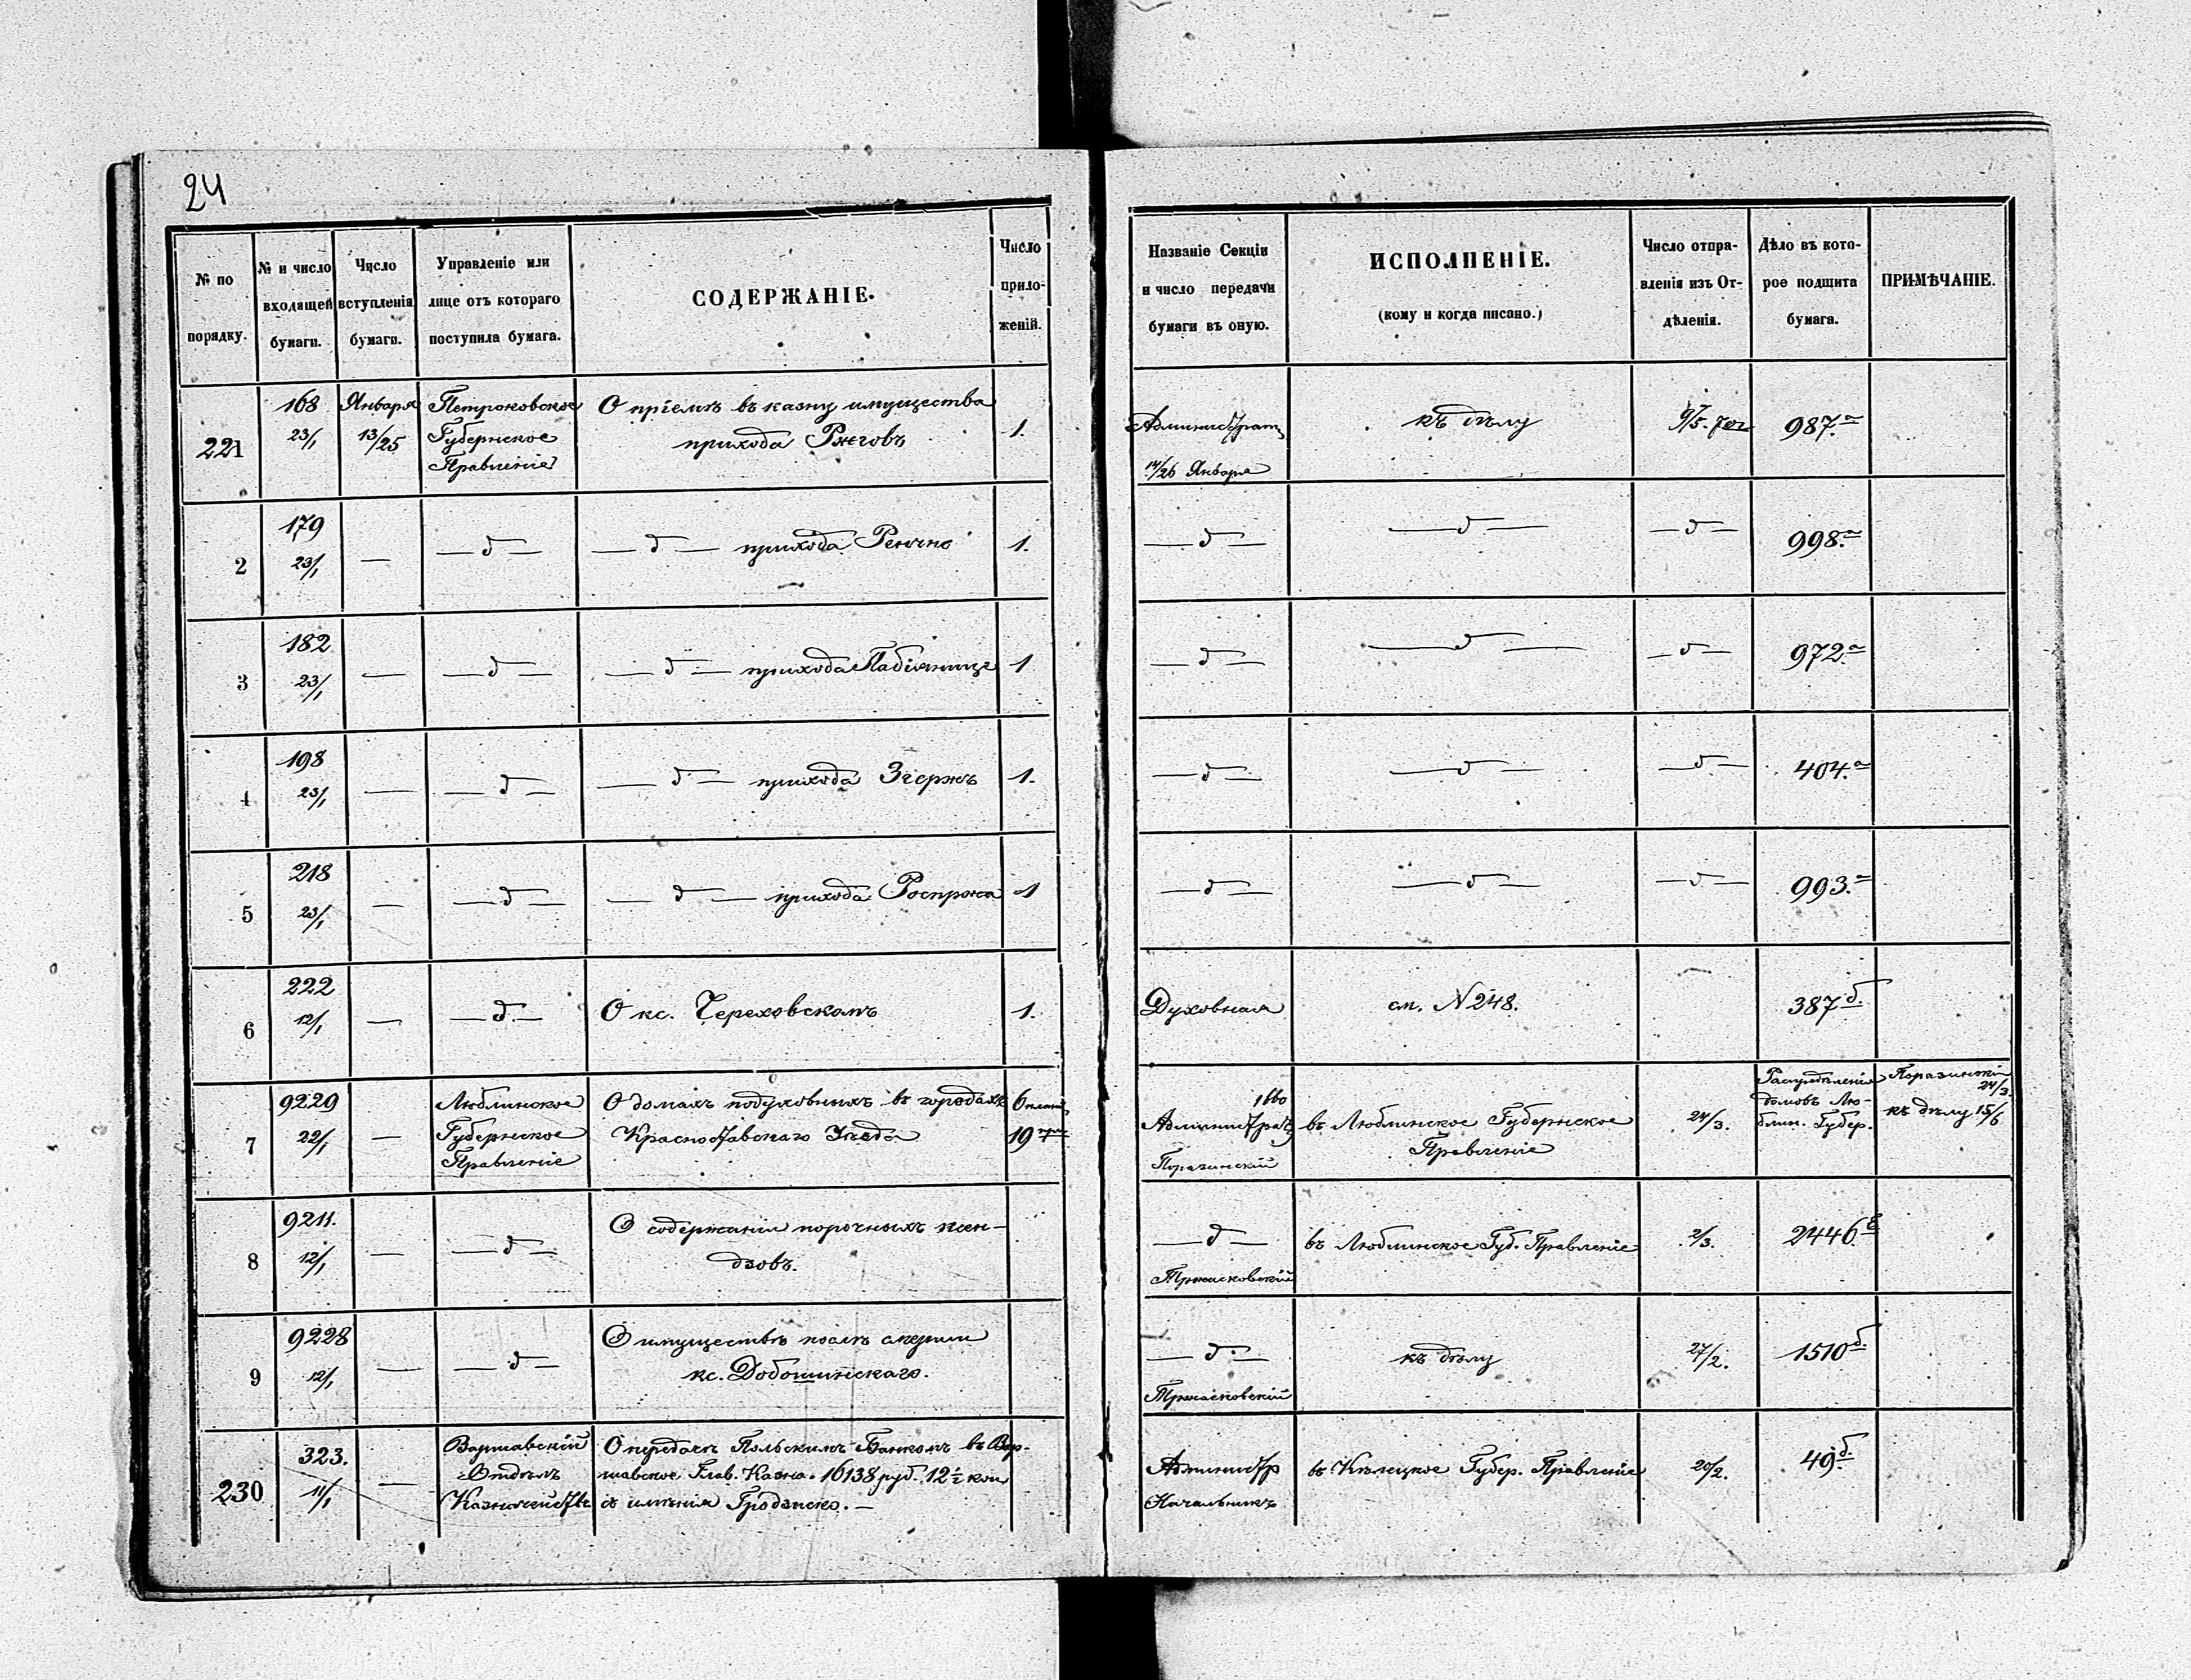 24
№ по порядку.
№ и число входящей бумаги.
Число вступленія бумаги.
Управленіе или лице отъ котораго поступила бумага.
СОДЕРЖАНІЕ.
Число приложеній.
Названіе Секціи и число передачи бумаги въ оную.
ИСПОЛНЕНІЕ.
(кому и когда писано.)
Число отправленія изъ Отдѣленія.
Дѣло въ которое подшита бумага.
ПРИМѢЧАНІЕ.
221
168
23/1
Января
13/25
Петроковское
Губернское
Правленіе
О пріемѣ въ казну имущества
прихода Ржговъ
1.
14/26 Января
къ дѣлу
987.а
2
179
23/1
—
— д —
— д — прихода Ренчно
1.
— д —
— д —
— д —
998.а
3
182
23/1
—
— д —
— д — прихода Пабіянице
1
— д —
— д —
— д —
972.а
4
198
23/1
—
— д —
— д — прихода Згержъ
1.
— д —
— д —
— д —
404.а
5
218
23/1
—
— д —
— д — прихода Роспржа
1
— д —
— д —
— д —
993.а
6
222
12/1
—
— д. —
О кс. Череховскомъ
1.
Духовная
см. № 248.
387 б.
7
9229
22/1
—
Люблинское
Губернское
Правленіе
О домахъ подуховныхъ въ городахъ
Красноставскаго Уѣзда
6 план.
19
Поразинскій
въ Люблинское Губернское
Правленіе
24/3.
Распредѣленія
домовъ Лю-
блин. Губер.
Поразинскій
24/3.
къ дѣлу 15/6
8
9211.
12/1
—
— д —
О содержаніи порочныхъ ксен-
дзовъ.
— д —
Тржасковскій
въ Люблинское Губ. Правленіе
2/3.
2446
9
9228
12/1
—
— д —
О имуществѣ послѣ смерти
кс. Добошинскаго.
— д —
Тржасковскій
къ дѣлу
27/2.
1510 б.
230
323.
11/1
—
Варшавскій
Отдѣлъ
Казначейства
О передачѣ Польскимъ Банкомъ въ Вар-
шавское Глав. Казна. 16138 руб. 12 1/2 коп
съ имѣнія Гродзиско. —
Администр
Начальникъ
въ Кѣлецкое Губер. Правленіе
20/2.
49 б.